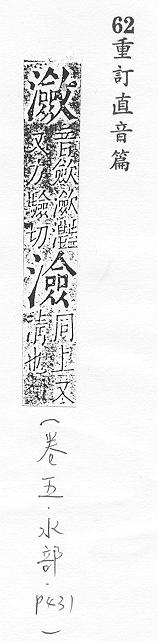 62重訂直音篇
瀲音斂瀲灩
又力驗切
澰同上又
清也
（卷五．水部．P431）